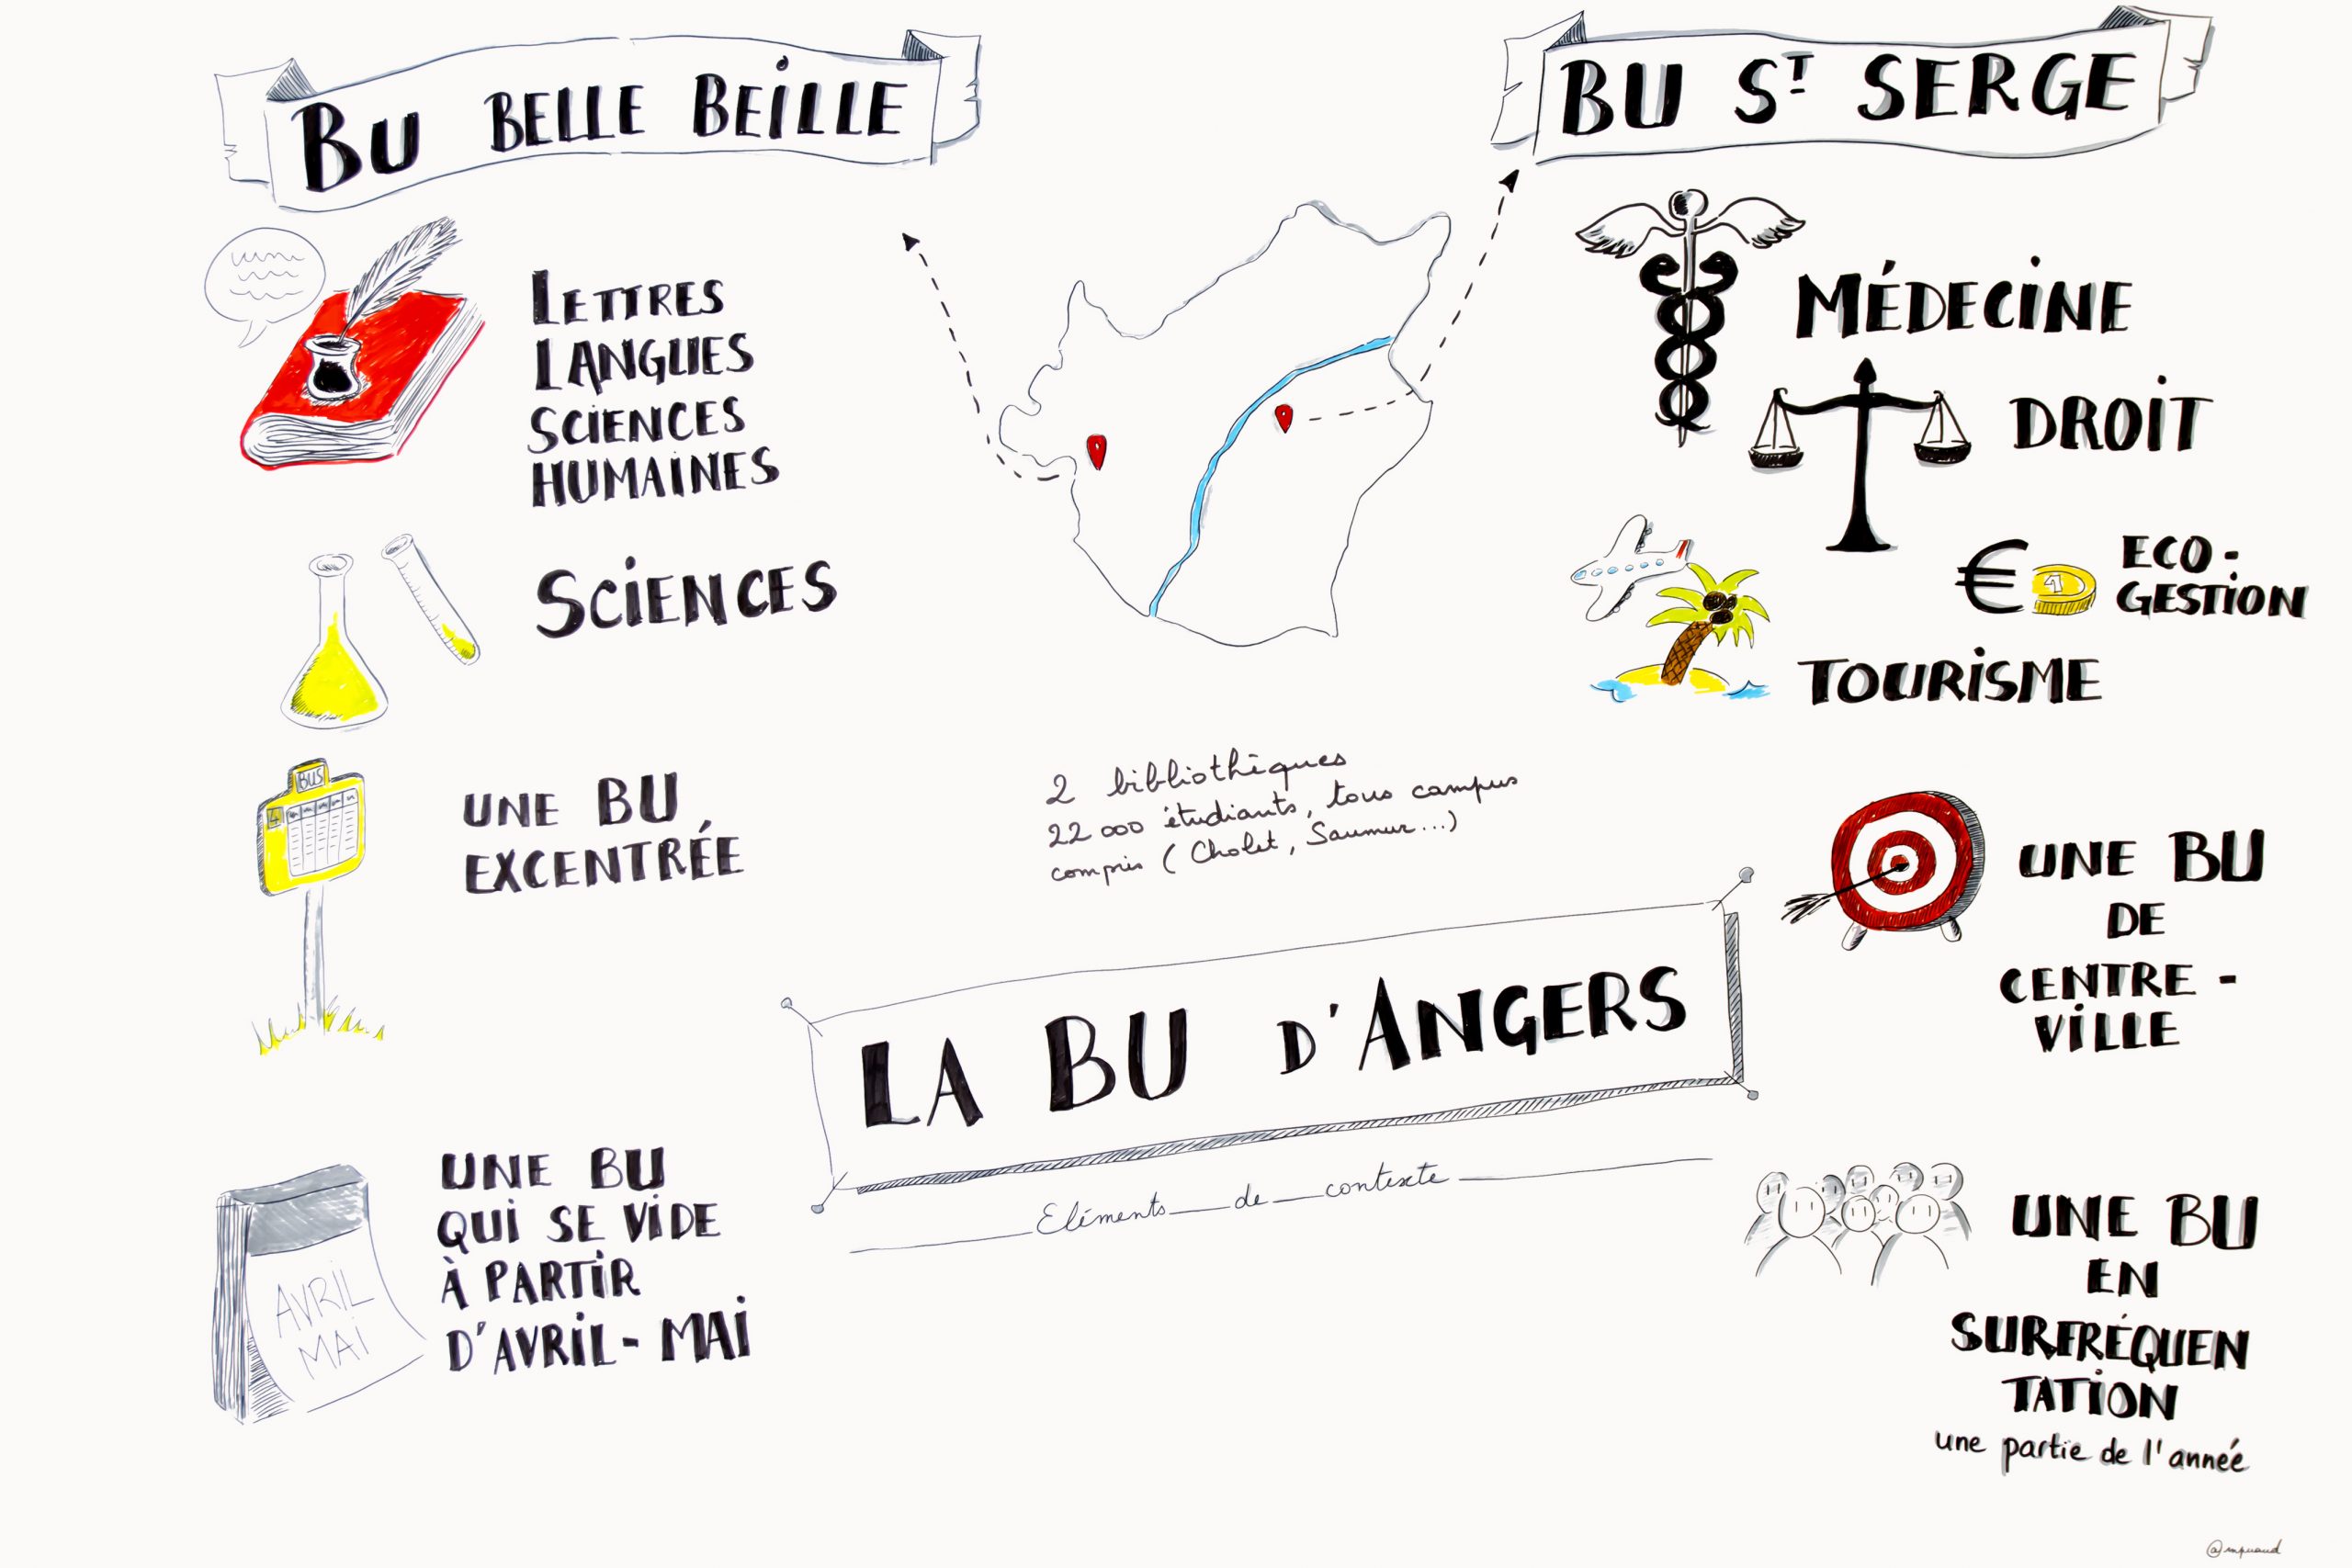 BU BELLE BEILLE
LETTRES
LANGUES
SCIENCES
HUMAINES
SCIENCES
BUS
4
UNE BU
EXCENTRÉE
AVRIL
MAI
UNE BU
QUI SE VIDE
À PARTIR
D'AVRIL - MAI
2 bibliothèques
22 000 étudiants, tous campus
compris (Cholet, Saumur...)
LA BU D'ANGERS
Eléments de contexte
BU ST SERGE
MÉDECINE
DROIT
€ 1 ECO-
GESTION
TOURISME
UNE BU
DE
CENTRE -
VILLE
UNE BU
EN
SURFRÉQUEN
TATION
une partie de l'année